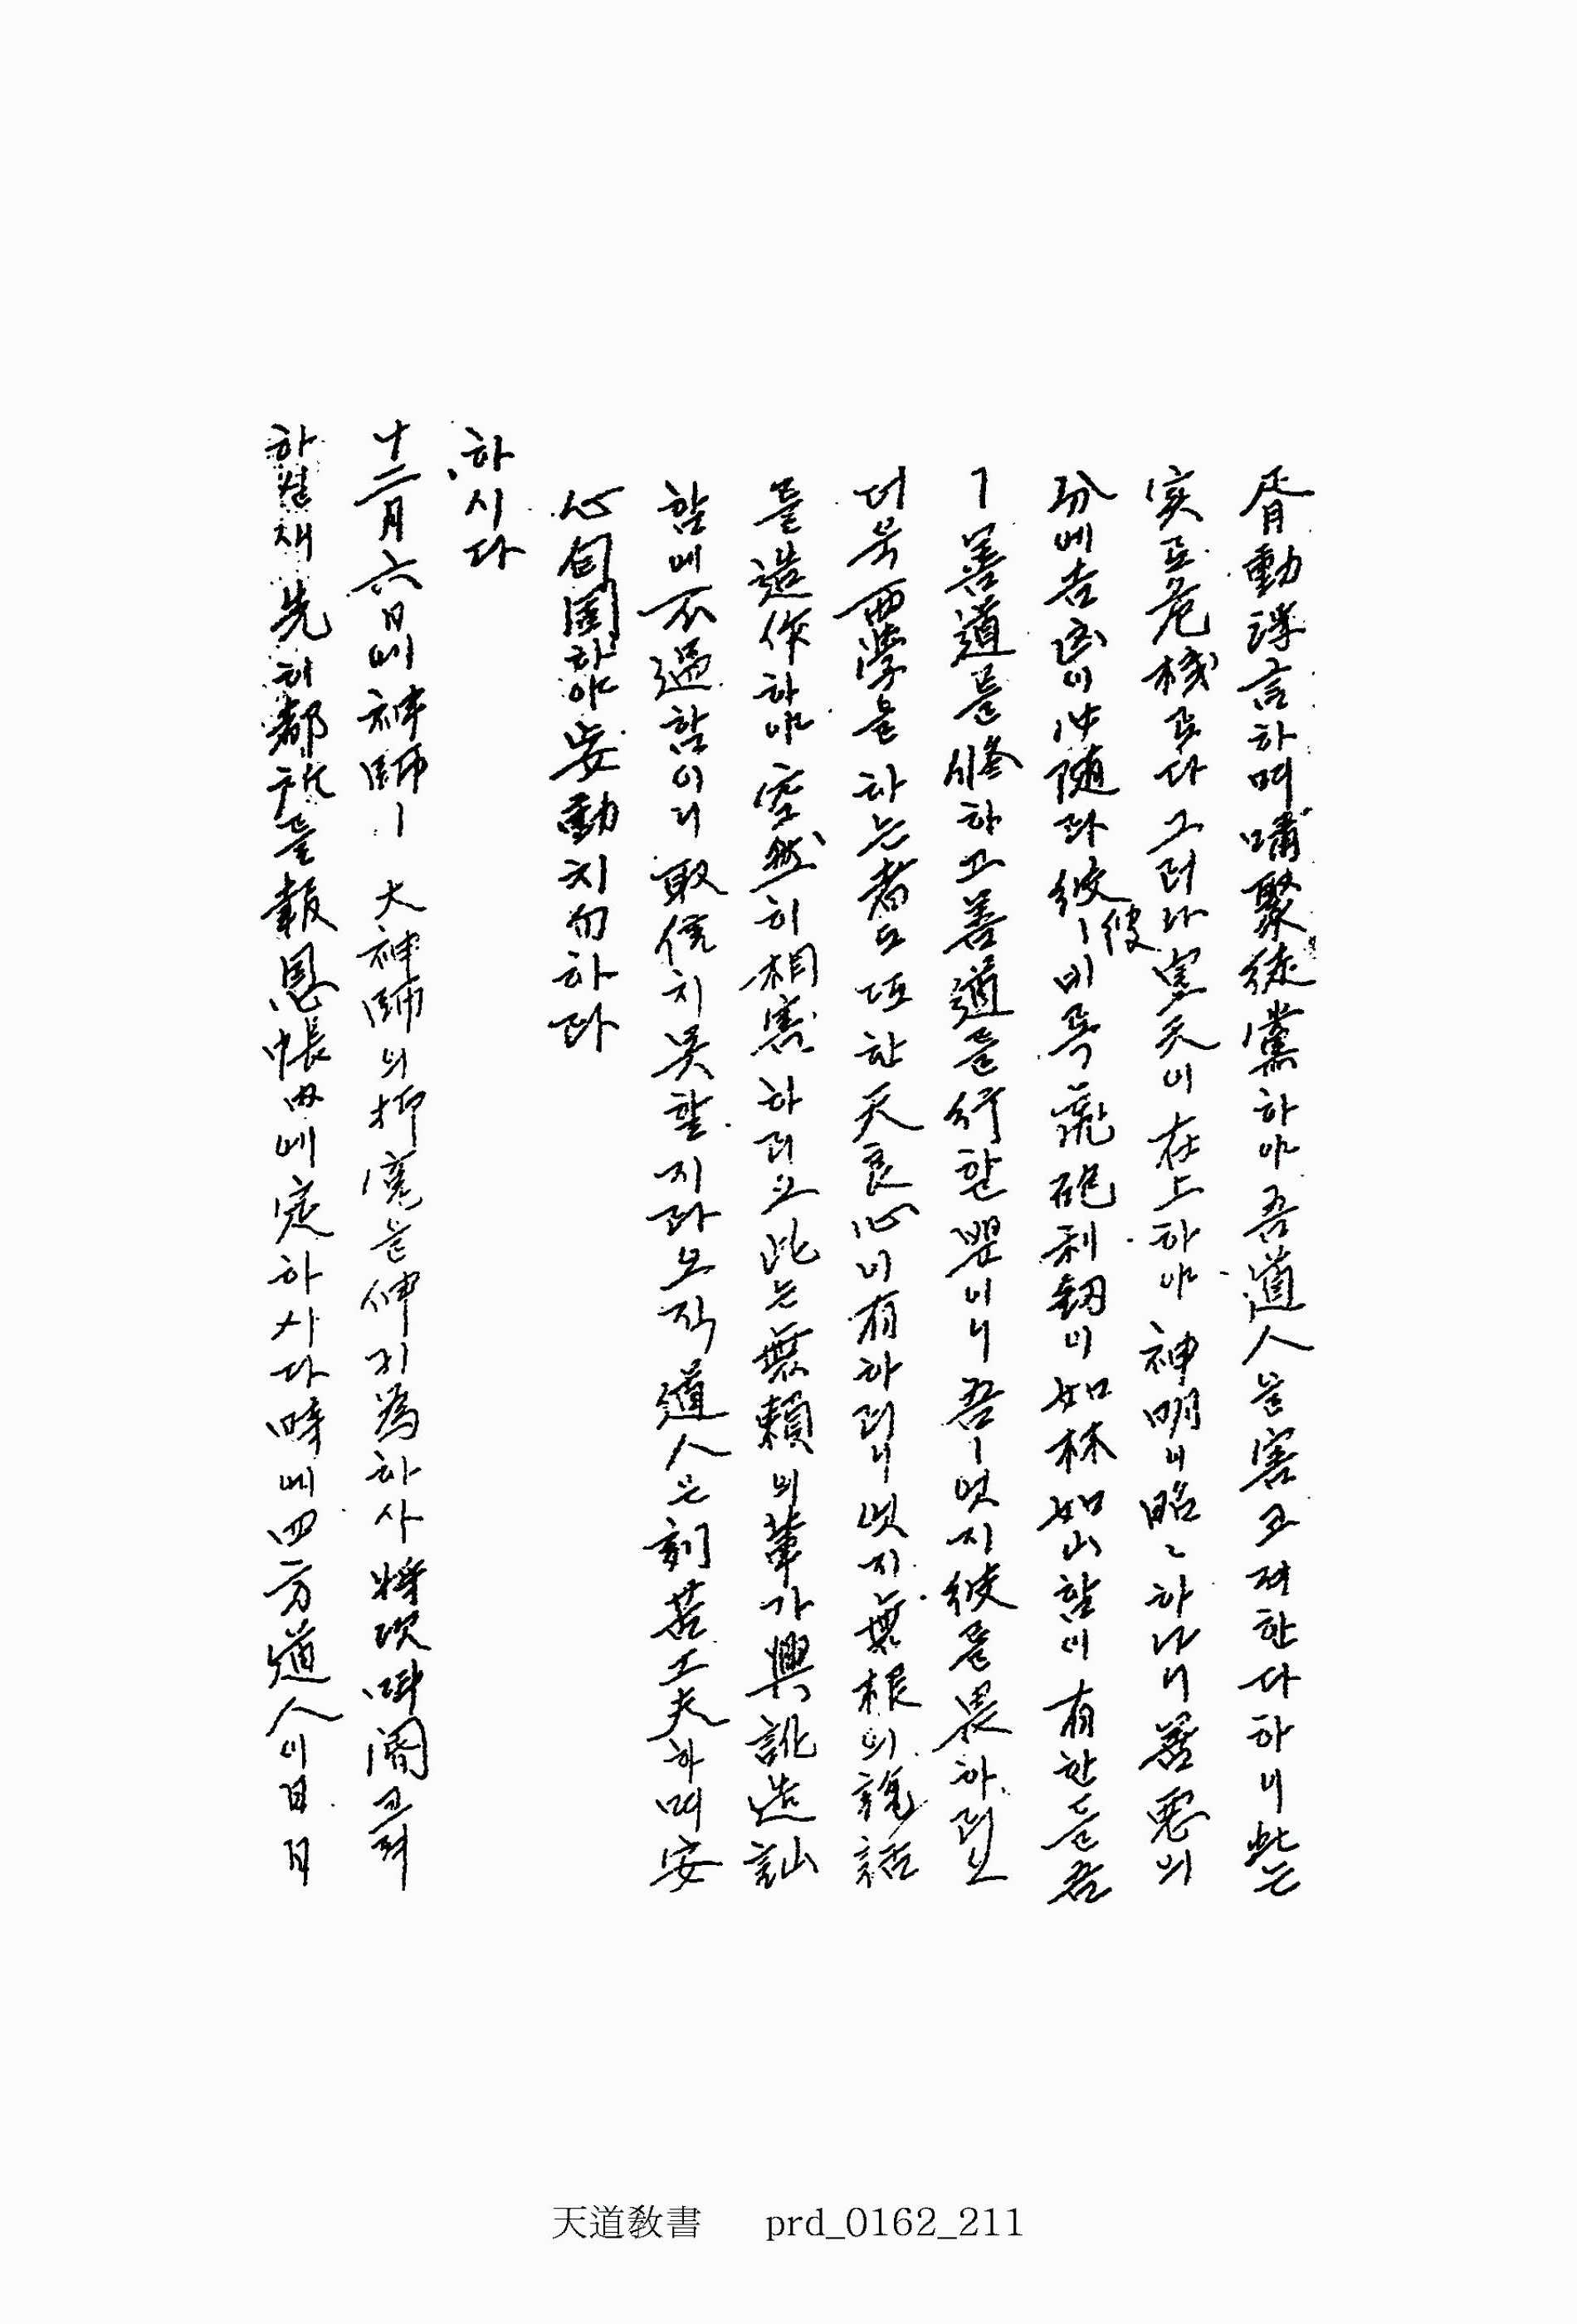 胥動浮言하며 嘯聚徒黨하야 吾道人을 害코져한다하니 此는
実로 危機로다 그러나 皇天이 在上하야 神明이 昭々하나니 善悪의
分에 吉凶이 비록 彼ㅣ 砲利 如林如山함이 有한들 吾
ㅣ 善道를 修하고 善道를 行할 뿐이니 吾ㅣ 엇지 彼를 畏하리오
더욱 西学을 하는 者도 또한 天良心이 有하리니 엇지 無根의 說話
를 造作하야 空然히 相害하리오 此는 無賴의 輩가 興訛造訕
함에 不過함이니 取信치 못할지라 오직 道人은 刻苦工夫하며 安
心 하야 妄動치 勿하라
하시다
十二月六日에 神師ㅣ 大神師의 抑寃을 伸키 為하사 将次 叫閤코져
하실새 先히 都所를 報恩帳內에 定하시다 時에 四方道人이 日日
天道教書 prd_0162_211